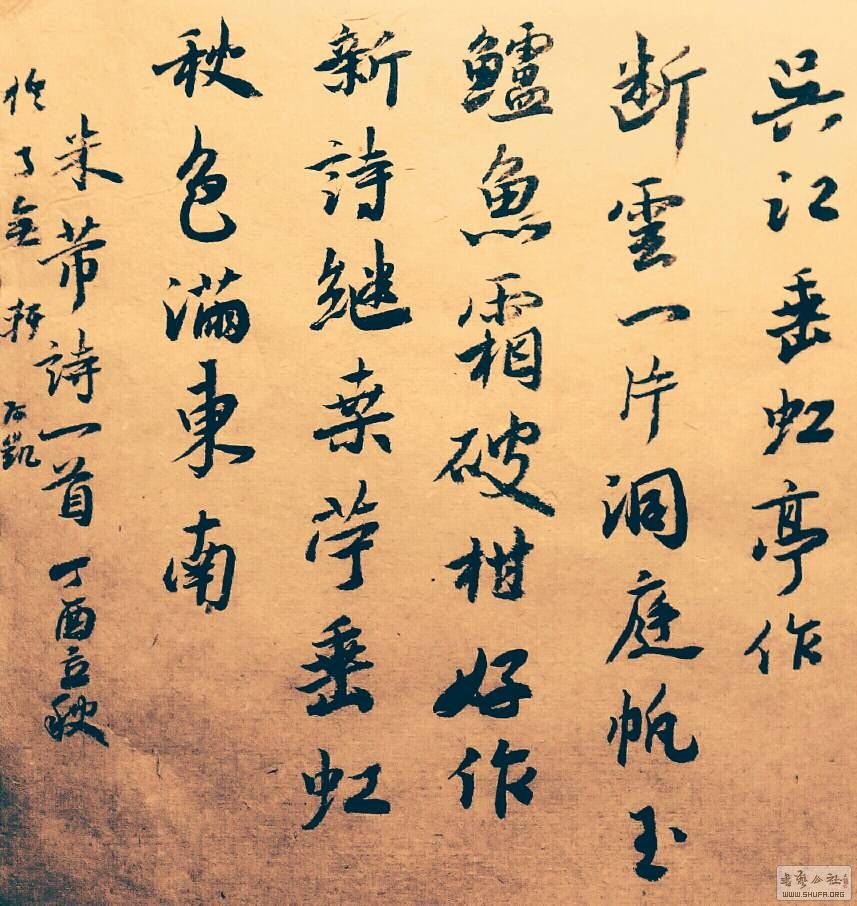 吳江垂虹亭作
断雲一片洞庭帆玉
鱸魚霜破柑好作
新詩継桒苧垂虹
秋色滿東南
米芾詩一首 丁酉立秋
於了
凱
書艺公社
WWW.SHUFA.ORG